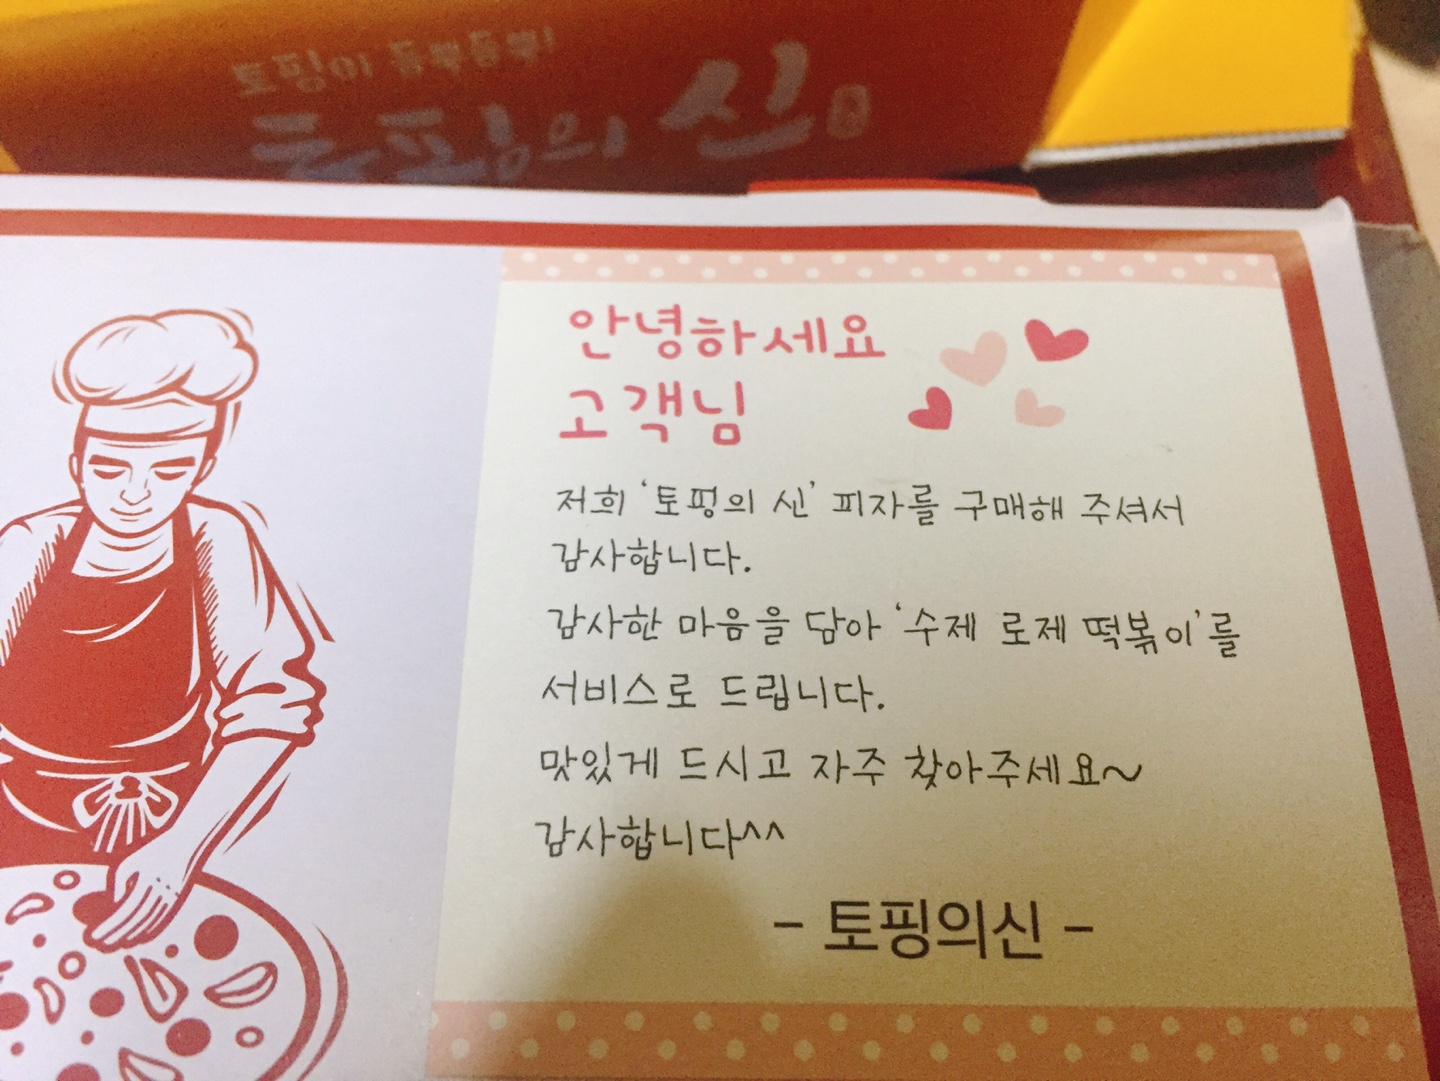 토핑이 듬뿍듬뿍!
토핑의 신
안녕하세요
고객님
저희 '토핑의 신' 피자를 구매해 주셔서
감사합니다.
감사한 마음을 담아 '수제 로제 떡볶이'를
서비스로 드립니다.
맛있게 드시고 자주 찾아주세요~
감사합니다^^
- 토핑의신 -